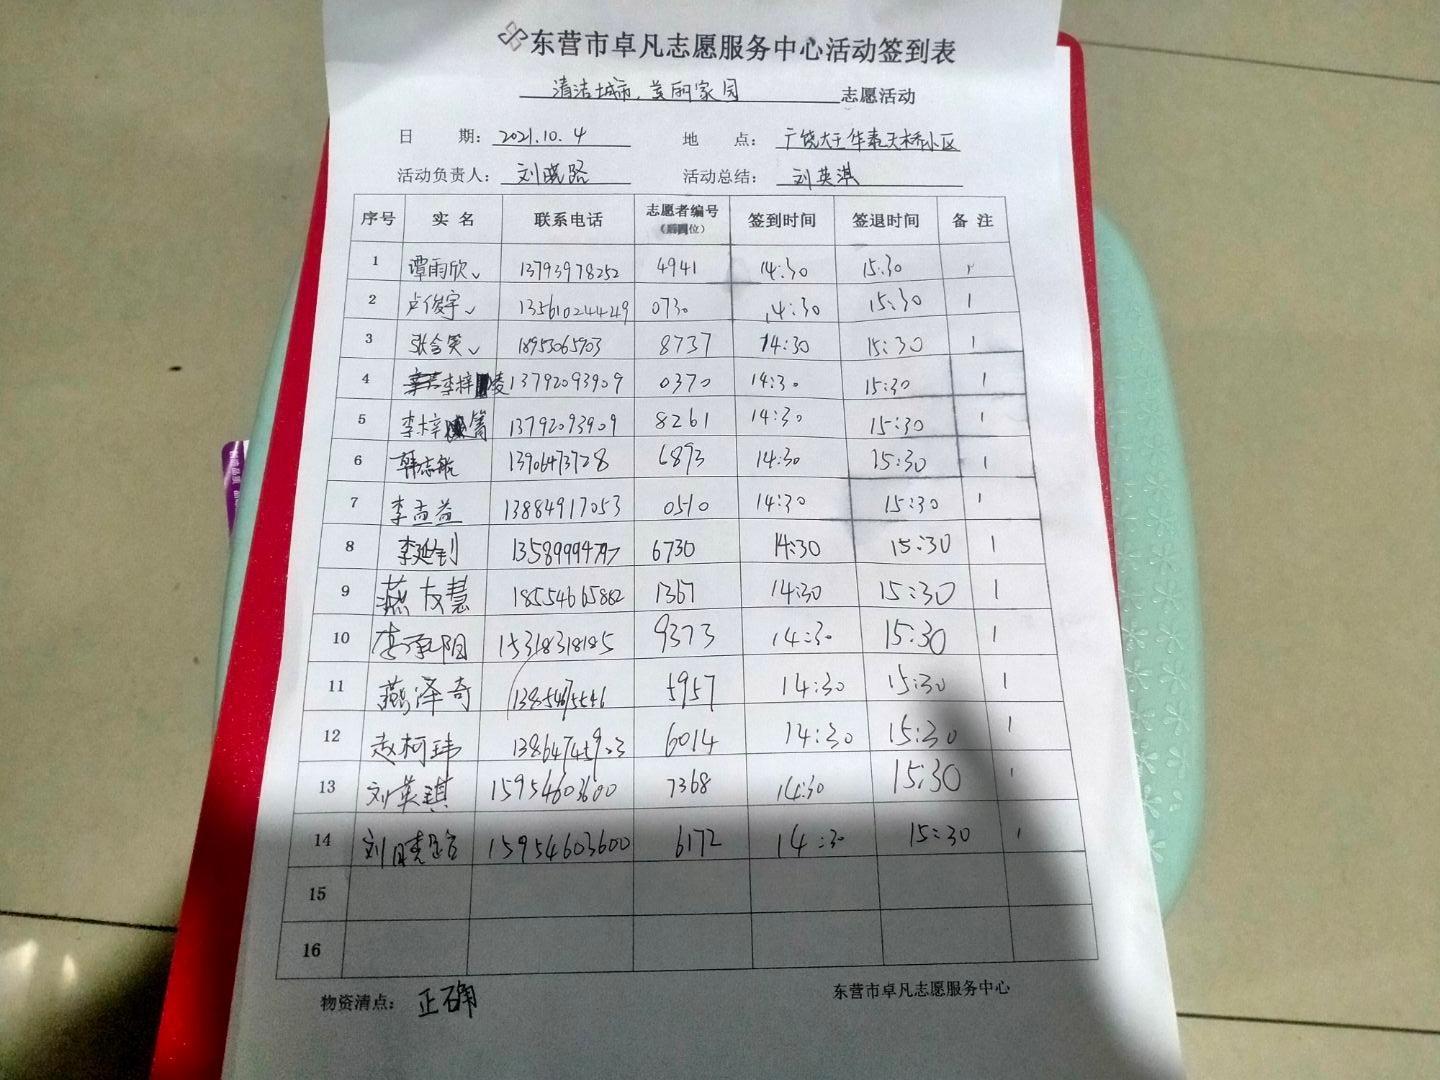 东营市卓凡志愿服务中心活动签到表
清洁城市,美丽家园 志愿活动
日 期: 2021.10.4 地 点: 广饶大王华泰天桥小区
活动负责人: 刘晓路 活动总结: 刘英淇
序号 实 名 联系电话 志愿者编号(后四位) 签到时间 签退时间 备 注
1 谭雨欣✓ 13793978252 4941 14:30 15:30
2 卢俊宇✓ 13561024449 0730 14:30 15:30 1
3 张含笑✓ 18953065903 8737 14:30 15:30 1
4 李梓菱 13792093909 0370 14:30 15:30 1
5 李梓 13792093909 8261 14:30 15:30 1
6 韩志航 13906473728 6893 14:30 15:30 1
7 李尚益 13884917053 0510 14:30 15:30 1
8 李延钊 13589994797 6730 14:30 15:30 1
9 燕友慧 18554665882 1367 14:30 15:30 1
10 李承阳 15318318185 9373 14:30 15:30 1
11 燕泽奇 13854675546 5957 14:30 15:30 1
12 赵柯玮 13864745923 6014 14:30 15:30 1
13 刘英琪 15954603600 7368 14:30 15:30 1
14 刘晓路 15954603600 6172 14:30 15:30 1
15
16
物资清点: 正确 东营市卓凡志愿服务中心